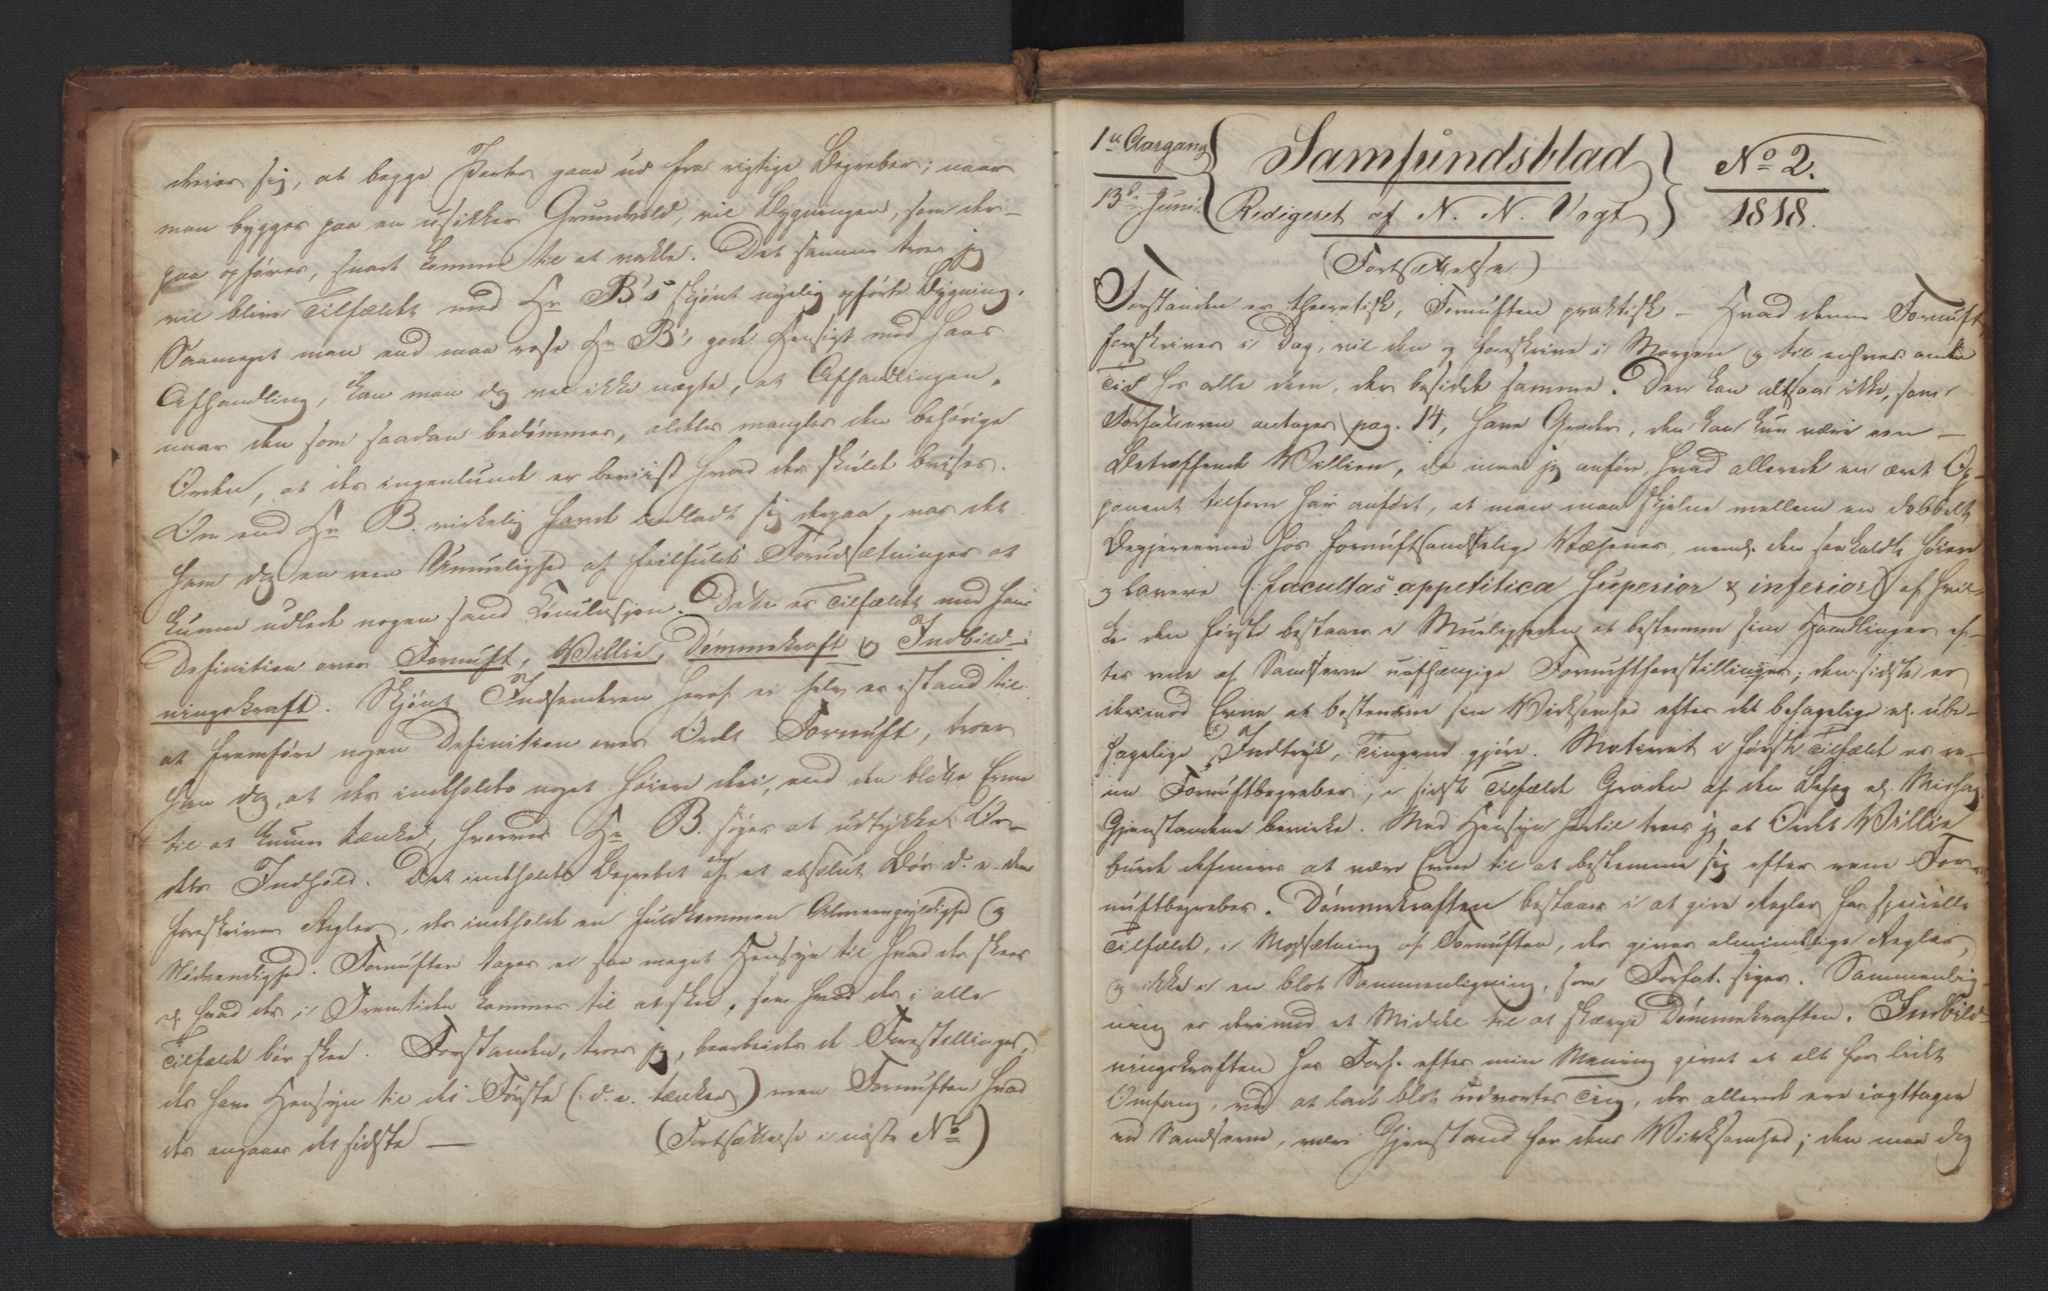 dreier sig, at begge Parter gaae ud fra rigtige Begreber; naar
man bygger paa en usikker Grundvold, vil Bygningen, som der-
paa opføres, snart komme til at vakle. Det samme troer jeg
vil blive Tilfældet med Hr B's skjønt nyelig opførte Bygning.
Saameget man end maa rose Hr B's gode Hensigt med hans
Afhandling, kan man dog vel ikke nægte, at Afhandlingen,
naar den som saadan bedømmes, aldeles mangler den behørige
Orden, at der ingenlunde er beviist hvad der skulde bevises.
Om end Hr B. virkelig havde indladt sig derpaa, var det
ham dog en reen Umuelighed af feilfulde Forudsætninger at
kunne udlede nogen sand Conclusjon. Dette er Tilfældet med hans
Definition over Fornuft, Willie, Dømmekraft og Indbild-
ningskraft. Skjønt Indsenderen heraf ei selv er istand til
at fremføre nogen Definition over Ordet Fornuft, troer
han dog, at der indholdes noget høiere deri, end den blotte Evne
til at kunne tænke, hvorved Hr B. siger at udtrykke Or-
dets Indhold. Det indholdte Begrebet om et absolut Bør d. e. den
foreskriver Regler, der indholde en fuldkommen Almeengyldighed og
Nødvendighed. Fornuften tager ei saa meget Hensyn til hvad der skeer
el. hvad der i Fremtiden kommer til at skee, som hvad der i alle
Tilfælde bør skee. Forstanden, troer jeg, bearbeider de Forestillinger,
der have Hensyn til det Første (: d. e. tænker) men Fornuften hvad
der angaaer det sidste —
(Fortsættelse i næste No)
1ste Aargang
13de Juni
Samfundsblad
Redigeret af N. N. Vogt
No 2.
1818.
(Fortsættelse)
Forstanden er theoretisk, Fornuften praktisk — Hvad denne Fornuft
foreskriver i Dag, vil den og foreskrive i Morgen og til enhver anden
Tid hos alle dem, der besidde samme. Den kan altsaa ikke, som
Forfatteren antager pag. 14, have Grader, den kan kun være een —
Betræffende Willien, da maa jeg anføre, hvad allerede en æret Op-
ponent tilforn har anført, at man maa skjelne mellem en dobbelt
Begjereevne hos fornuftsandselige Wæsener, nemlig den saakaldte høiere
og lavere (: facultas appetitica superior & inferior) af hvil-
ke den første bestaaer i Mueligheden at bestemme sine Handlinger ef-
ter rene af Sandserne uafhængige Fornuftforestillinger; den sidste er
derimod Evne at bestemme sin Wirksomhed efter det behagelige el. ube-
hagelige Indtryk, Tingene gjøre. Motivet i første Tilfælde er re-
ne Fornuftbegreber, i sidste Tilfælde Graden af den Behag el. Mishag
Gjenstandene bevirke. Med Hensyn hertil troer jeg at Ordet Willie
burde defineres at være Evne til at bestemme sig efter rene For-
nuftbegreber. Dømmekraften bestaaer i at give Regler for specielle
Tilfælde, i Modsætning af Fornuften, der giver almindelige Regler,
og ikke i en blot Sammenligning, som Forfat. siger. Sammenlig-
ning er derimod et Middel til at skærpe Dømmekraften. Indbild-
ningskraften har Forf. efter min Mening givet et alt for lidet
Omfang, ved at lade blot udvortes Ting, der allerede ere iagttagne
ved Sandserne, være Gjenstand for dens Wirksomhed; den maa dog